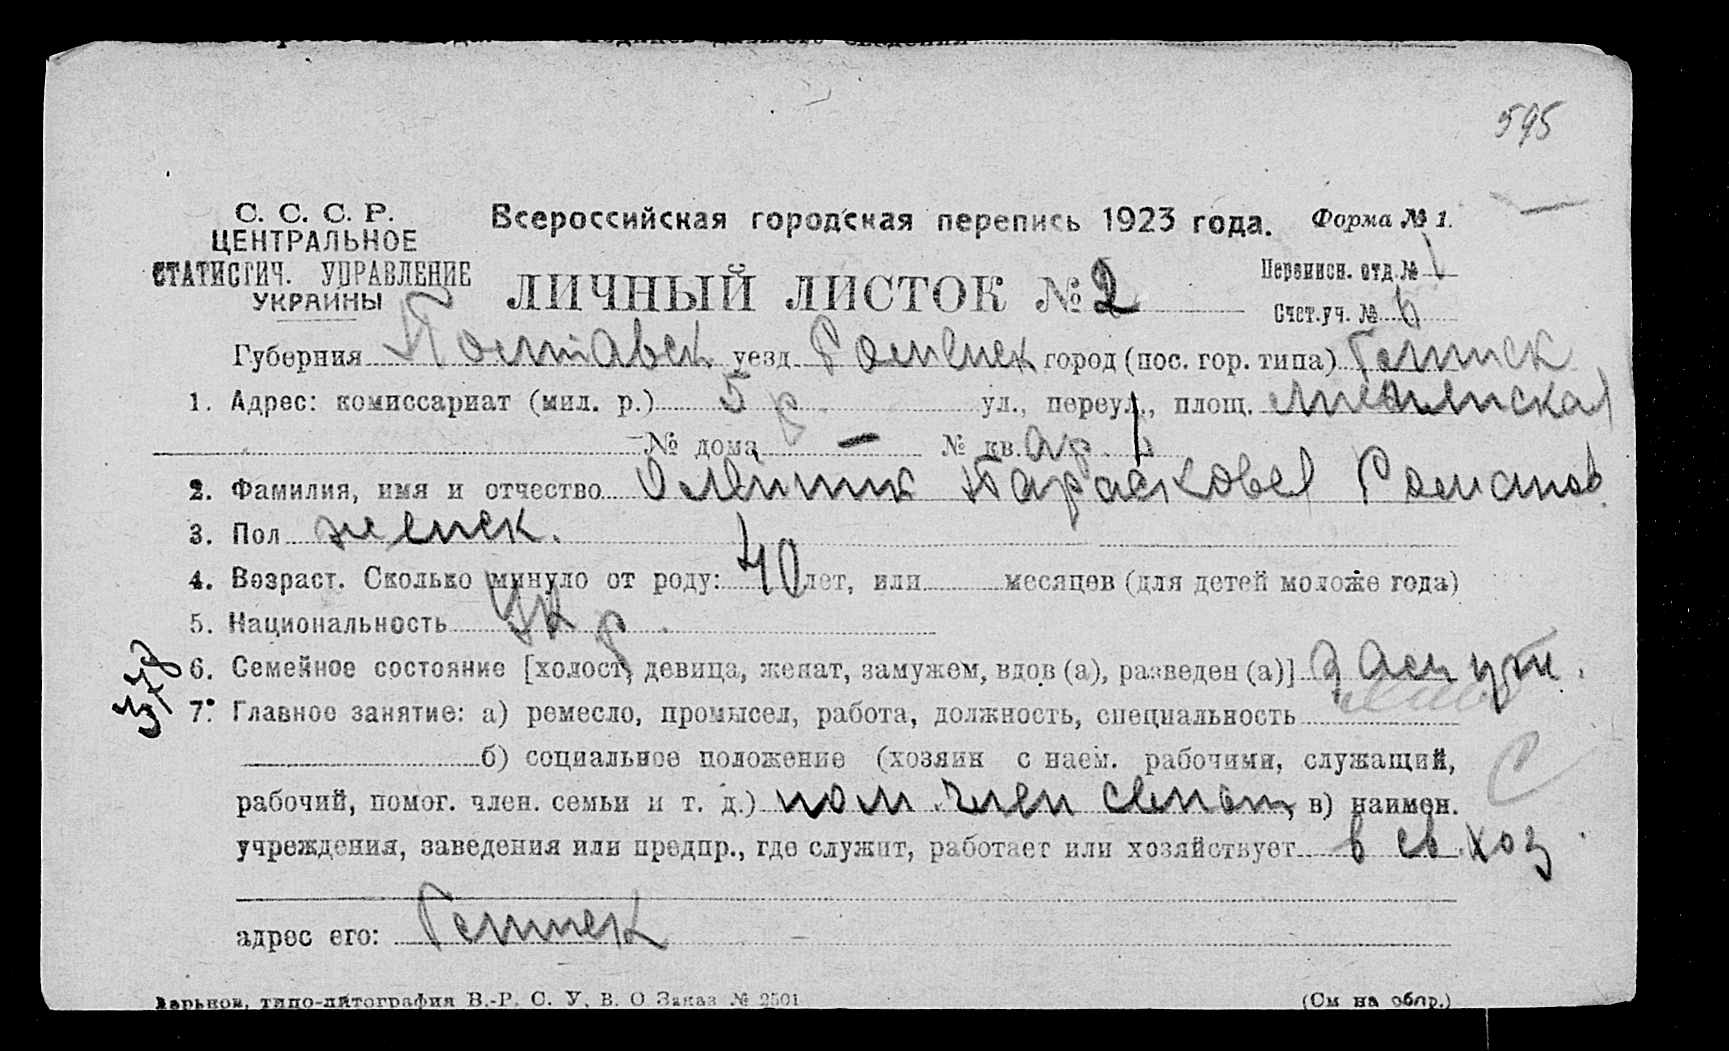 595
С. С. С. Р.
ЦЕНТРАЛЬНОЕ
СТАТИСТИЧ. УПРАВЛЕНИЕ
УКРАИНЫ
Всероссийская городская перепись 1923 года. Форма № 1.
ЛИЧНЫЙ ЛИСТОК № 2
Переписн. отд. № 1
Счет. уч. № 6
Губерния Полтавск уезд Роменск город (пос. гор. типа)
1. Адрес: комиссариат (мил. р.) 5 р. ул., переул., площ.
№ дома — № кв.
2. Фамилия, имя и отчество Олейник Парасковея Романов
3. Пол женск.
4. Возраст. Сколько минуло от роду: 40 лет, или месяцев (для детей моложе года)
5. Национальность Укр.
378
6. Семейное состояние [холост, девица, женат, замужем, вдов (а), разведен (а)] замуж.
7. Главное занятие: а) ремесло, промысел, работа, должность, специальность
б) социальное положение (хозяин с наем. рабочими, служащий,
рабочий, помог. член. семьи и т. д.) пом член семьи, в) наимен.
учреждения, заведения или предпр., где служит, работает или хозяйствует в св. хоз.
адрес его:
Харьков, типо-литография В.-Р. С. У. В. О Заказ № 2501
(См на обор.)